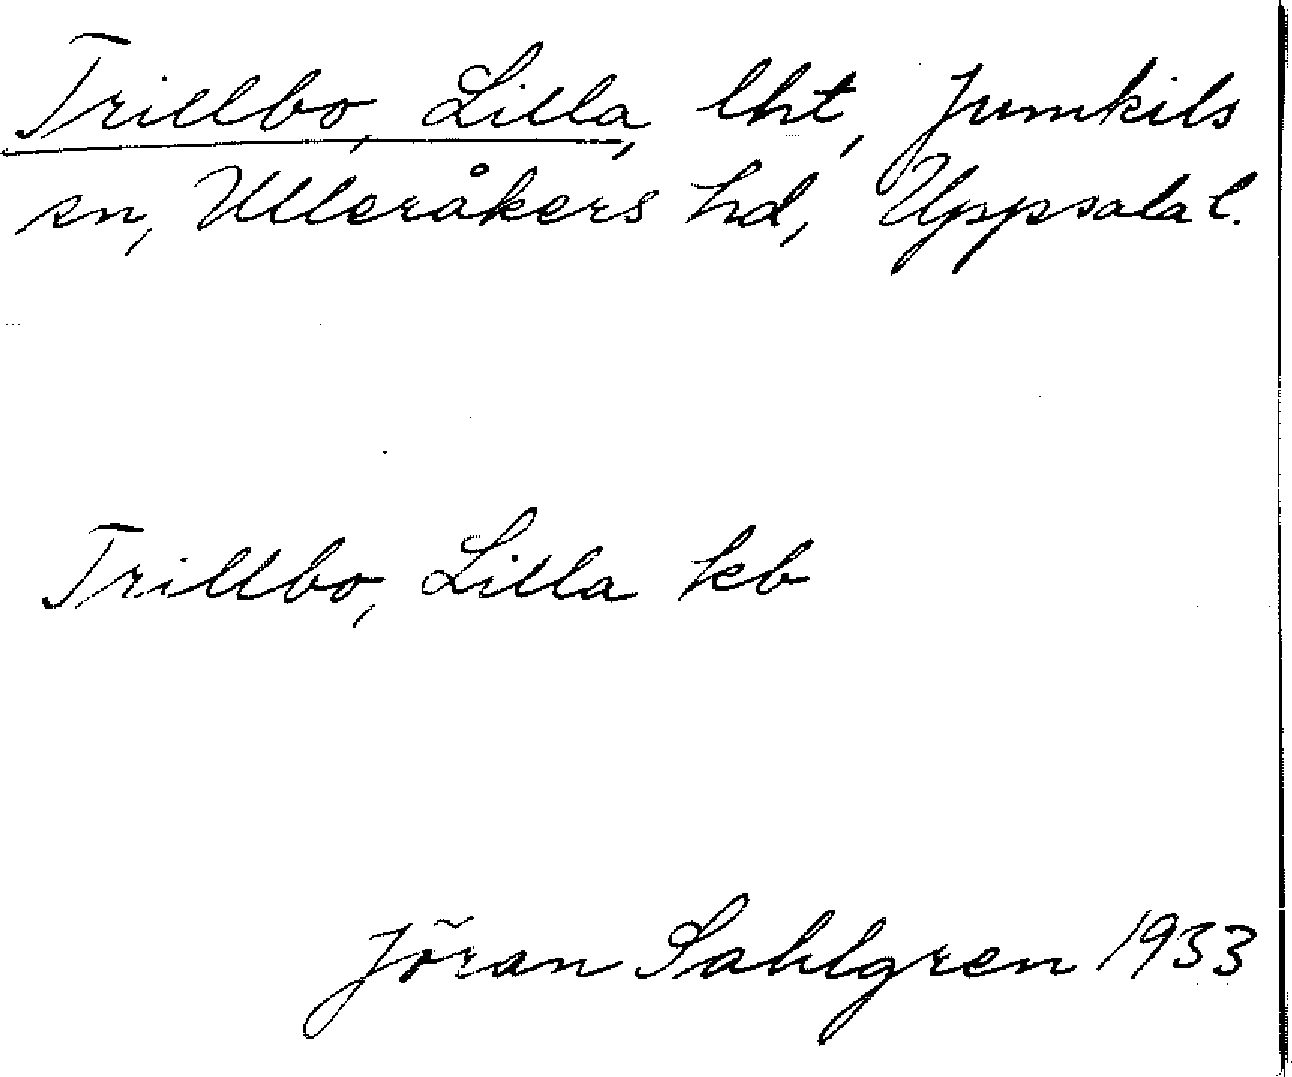 Trillbo, Lilla, lht, Jumkils
sn, Ulleråkers hd, Uppsala l.
Trillbo, Lilla kb
Jöran Sahlgren 1933